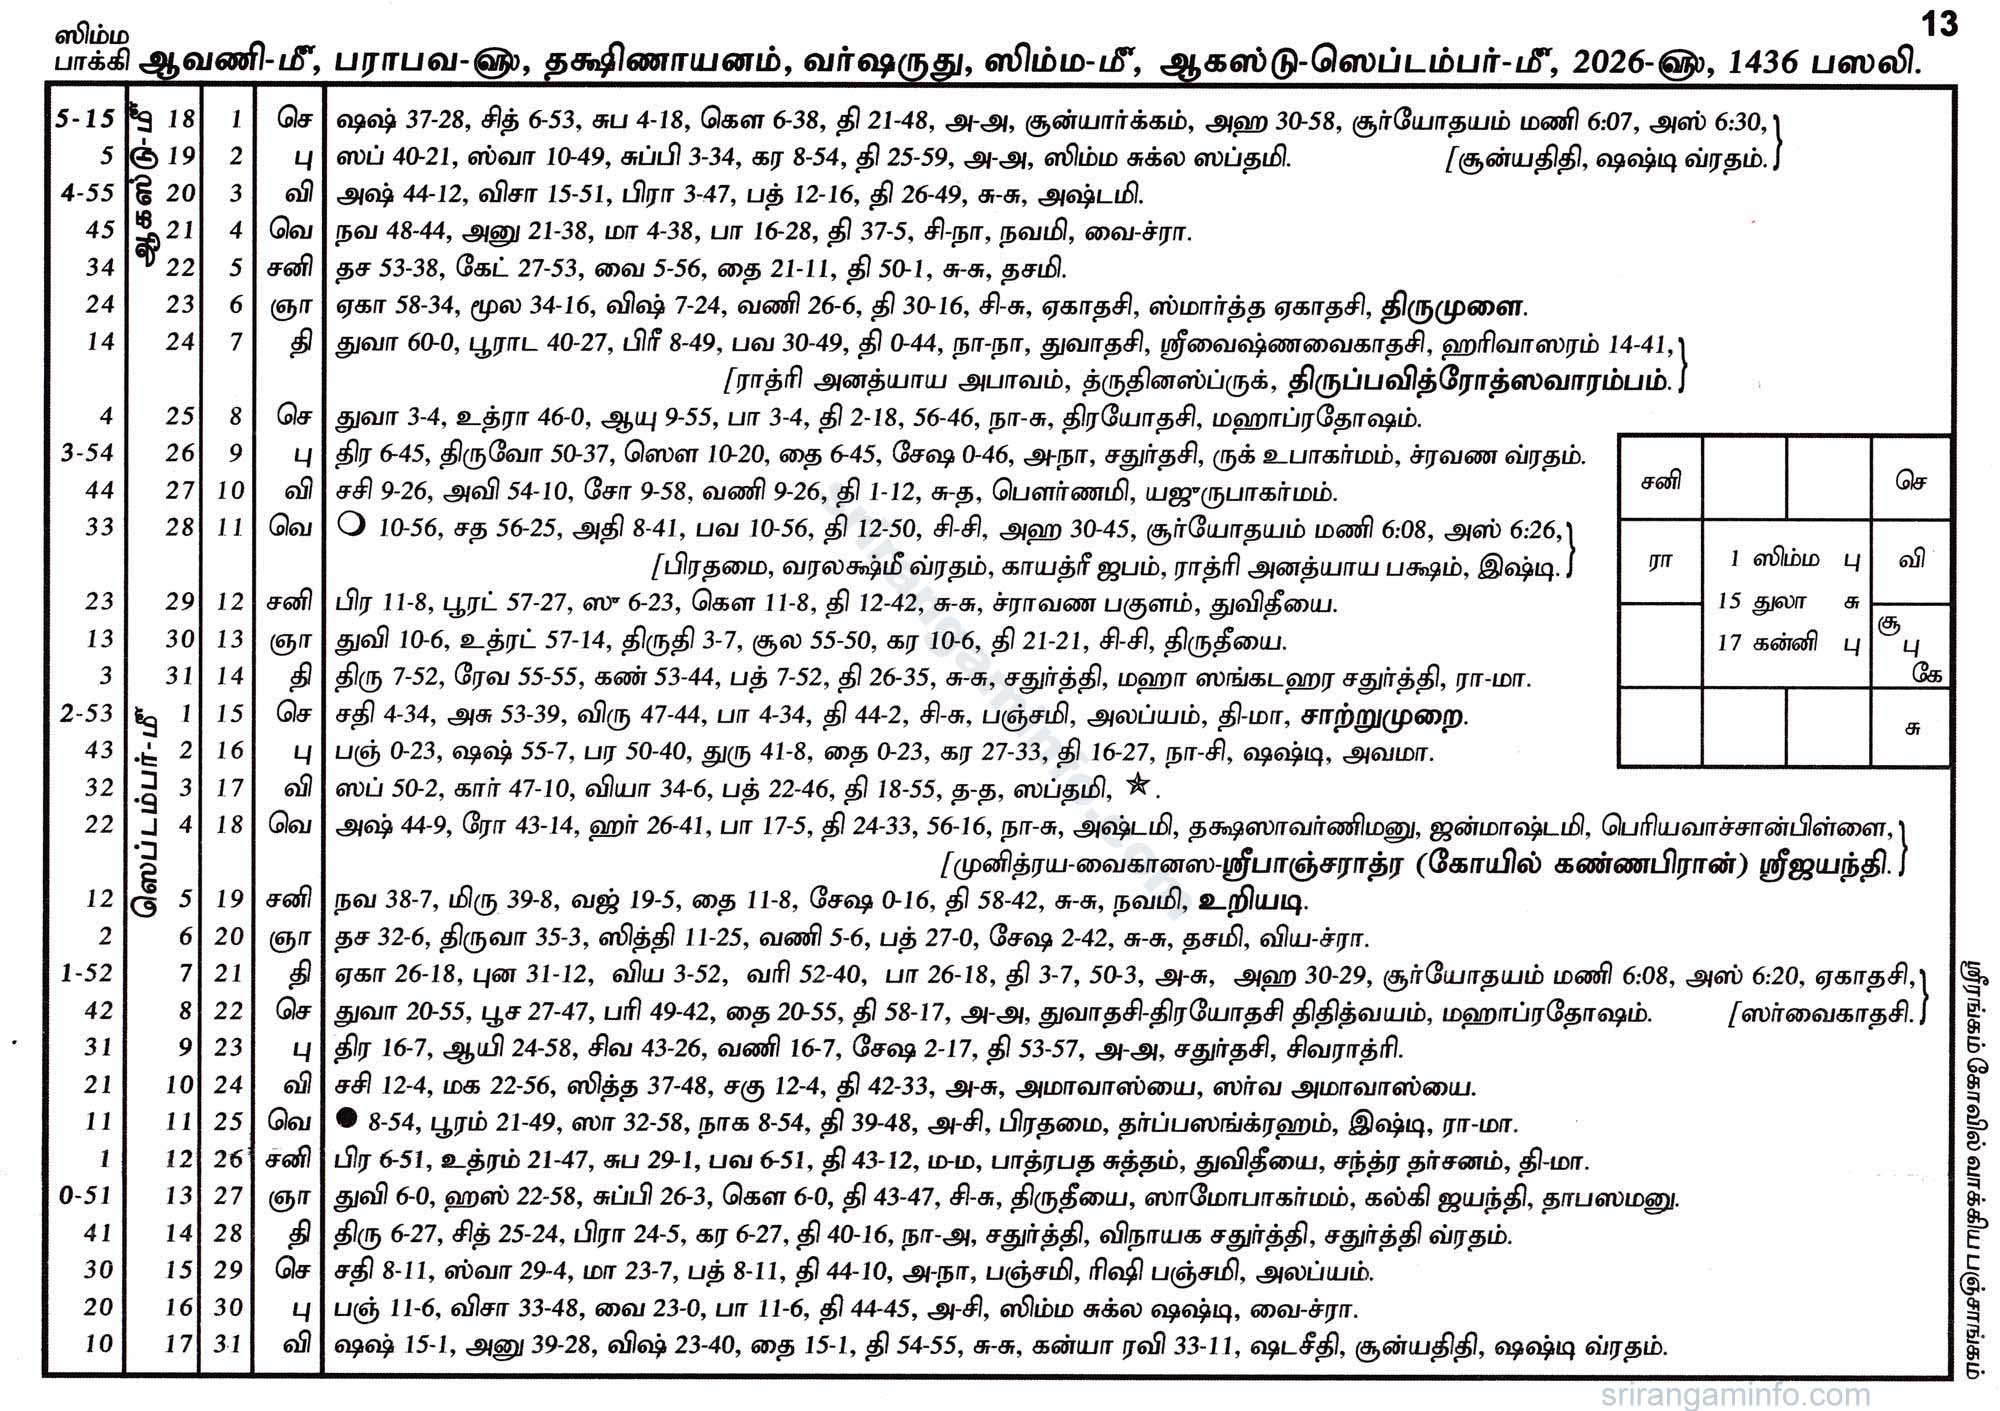 13
ஸிம்ம
பாக்கி ஆவணி-மீ, பராபவ-ஹு, தக்ஷிணாயனம், வர்ஷருது, ஸிம்ம-மீ, ஆகஸ்டு-ஸெப்டம்பர்-மீ, 2026-ஹு, 1436 பஸலி.
ஆகஸ்டு-மீ
5-15 18 1 செ ஷஷ் 37-28, சித் 6-53, சுப 4-18, கௌ 6-38, தி 21-48, அ-அ, சூன்யார்க்கம், அஹ 30-58, சூர்யோதயம் மணி 6:07, அஸ் 6:30,
5 19 2 பு ஸப் 40-21, ஸ்வா 10-49, சுப்பி 3-34, கர 8-54, தி 25-59, அ-அ, ஸிம்ம சுக்ல ஸப்தமி. [சூன்யதிதி, ஷஷ்டி வ்ரதம்.
4-55 20 3 வி அஷ் 44-12, விசா 15-51, பிரா 3-47, பத் 12-16, தி 26-49, சு-சு, அஷ்டமி.
45 21 4 வெ நவ 48-44, அனு 21-38, மா 4-38, பா 16-28, தி 37-5, சி-நா, நவமி, வை-ச்ரா.
34 22 5 சனி தச 53-38, கேட் 27-53, வை 5-56, தை 21-11, தி 50-1, சு-சு, தசமி.
24 23 6 ஞா ஏகா 58-34, மூல 34-16, விஷ் 7-24, வணி 26-6, தி 30-16, சி-சு, ஏகாதசி, ஸ்மார்த்த ஏகாதசி, திருமுளை.
14 24 7 தி துவா 60-0, பூராட 40-27, பிரீ 8-49, பவ 30-49, தி 0-44, நா-நா, துவாதசி, ஸ்ரீவைஷ்ணவைகாதசி, ஹரிவாஸரம் 14-41,
[ராத்ரி அனத்யாய அபாவம், த்ருதினஸ்ப்ருக், திருப்பவித்ரோத்ஸவாரம்பம்.
4 25 8 செ துவா 3-4, உத்ரா 46-0, ஆயு 9-55, பா 3-4, தி 2-18, 56-46, நா-சு, திரயோதசி, மஹாப்ரதோஷம்.
3-54 26 9 பு திர 6-45, திருவோ 50-37, ஸௌ 10-20, தை 6-45, சேஷ 0-46, அ-நா, சதுர்தசி, ருக் உபாகர்மம், ச்ரவண வ்ரதம்.
44 27 10 வி சசி 9-26, அவி 54-10, சோ 9-58, வணி 9-26, தி 1-12, சு-த, பௌர்ணமி, யஜுருபாகர்மம்.
33 28 11 வெ 10-56, சத 56-25, அதி 8-41, பவ 10-56, தி 12-50, சி-சி, அஹ 30-45, சூர்யோதயம் மணி 6:08, அஸ் 6:26,
[பிரதமை, வரலக்ஷ்மீ வ்ரதம், காயத்ரீ ஜபம், ராத்ரி அனத்யாய பக்ஷம், இஷ்டி.
23 29 12 சனி பிர 11-8, பூரட் 57-27, ஸு 6-23, கௌ 11-8, தி 12-42, சு-சு, ச்ராவண பகுளம், துவிதீயை.
13 30 13 ஞா துவி 10-6, உத்ரட் 57-14, திருதி 3-7, சூல 55-50, கர 10-6, தி 21-21, சி-சி, திருதீயை.
3 31 14 தி திரு 7-52, ரேவ 55-55, கண் 53-44, பத் 7-52, தி 26-35, சு-சு, சதுர்த்தி, மஹா ஸங்கடஹர சதுர்த்தி, ரா-மா.
ஸெப்டம்பர்-மீ
2-53 1 15 செ சதி 4-34, அசு 53-39, விரு 47-44, பா 4-34, தி 44-2, சி-சு, பஞ்சமி, அலப்யம், தி-மா, சாற்றுமுறை.
43 2 16 பு பஞ் 0-23, ஷஷ் 55-7, பர 50-40, துரு 41-8, தை 0-23, கர 27-33, தி 16-27, நா-சி, ஷஷ்டி, அவமா.
32 3 17 வி ஸப் 50-2, கார் 47-10, வியா 34-6, பத் 22-46, தி 18-55, த-த, ஸப்தமி, ☆.
22 4 18 வெ அஷ் 44-9, ரோ 43-14, ஹர் 26-41, பா 17-5, தி 24-33, 56-16, நா-சு, அஷ்டமி, தக்ஷஸாவர்ணிமனு, ஜன்மாஷ்டமி, பெரியவாச்சான்பிள்ளை,
[முனித்ரய-வைகானஸ-ஸ்ரீபாஞ்சராத்ர (கோயில் கண்ணபிரான்) ஸ்ரீஜயந்தி.
12 5 19 சனி நவ 38-7, மிரு 39-8, வஜ் 19-5, தை 11-8, சேஷ 0-16, தி 58-42, சு-சு, நவமி, உறியடி.
2 6 20 ஞா தச 32-6, திருவா 35-3, ஸித்தி 11-25, வணி 5-6, பத் 27-0, சேஷ 2-42, சு-சு, தசமி, விய-ச்ரா.
1-52 7 21 தி ஏகா 26-18, புன 31-12, விய 3-52, வரி 52-40, பா 26-18, தி 3-7, 50-3, அ-சு, அஹ 30-29, சூர்யோதயம் மணி 6:08, அஸ் 6:20, ஏகாதசி,
42 8 22 செ துவா 20-55, பூச 27-47, பரி 49-42, தை 20-55, தி 58-17, அ-அ, துவாதசி-திரயோதசி திதித்வயம், மஹாப்ரதோஷம். [ஸர்வைகாதசி.
31 9 23 பு திர 16-7, ஆயி 24-58, சிவ 43-26, வணி 16-7, சேஷ 2-17, தி 53-57, அ-அ, சதுர்தசி, சிவராத்ரி.
21 10 24 வி சசி 12-4, மக 22-56, ஸித்த 37-48, சகு 12-4, தி 42-33, அ-சு, அமாவாஸ்யை, ஸர்வ அமாவாஸ்யை.
11 11 25 வெ 8-54, பூரம் 21-49, ஸா 32-58, நாக 8-54, தி 39-48, அ-சி, பிரதமை, தர்ப்பஸங்க்ரஹம், இஷ்டி, ரா-மா.
1 12 26 சனி பிர 6-51, உத்ரம் 21-47, சுப 29-1, பவ 6-51, தி 43-12, ம-ம, பாத்ரபத சுத்தம், துவிதீயை, சந்த்ர தர்சனம், தி-மா.
0-51 13 27 ஞா துவி 6-0, ஹஸ் 22-58, சுப்பி 26-3, கௌ 6-0, தி 43-47, சி-சு, திருதீயை, ஸாமோபாகர்மம், கல்கி ஜயந்தி, தாபஸமனு.
41 14 28 தி திரு 6-27, சித் 25-24, பிரா 24-5, கர 6-27, தி 40-16, நா-அ, சதுர்த்தி, விநாயக சதுர்த்தி, சதுர்த்தி வ்ரதம்.
30 15 29 செ சதி 8-11, ஸ்வா 29-4, மா 23-7, பத் 8-11, தி 44-10, அ-நா, பஞ்சமி, ரிஷி பஞ்சமி, அலப்யம்.
20 16 30 பு பஞ் 11-6, விசா 33-48, வை 23-0, பா 11-6, தி 44-45, அ-சி, ஸிம்ம சுக்ல ஷஷ்டி, வை-ச்ரா.
10 17 31 வி ஷஷ் 15-1, அனு 39-28, விஷ் 23-40, தை 15-1, தி 54-55, சு-சு, கன்யா ரவி 33-11, ஷடசீதி, சூன்யதிதி, ஷஷ்டி வ்ரதம்.
சனி செ
ரா 1 ஸிம்ம பு வி
15 துலா சு
17 கன்னி பு
சூ பு கே
சு
ஸ்ரீரங்கம் கோவில் வாக்கிய பஞ்சாங்கம்
srirangaminfo.com
srirangaminfo.com